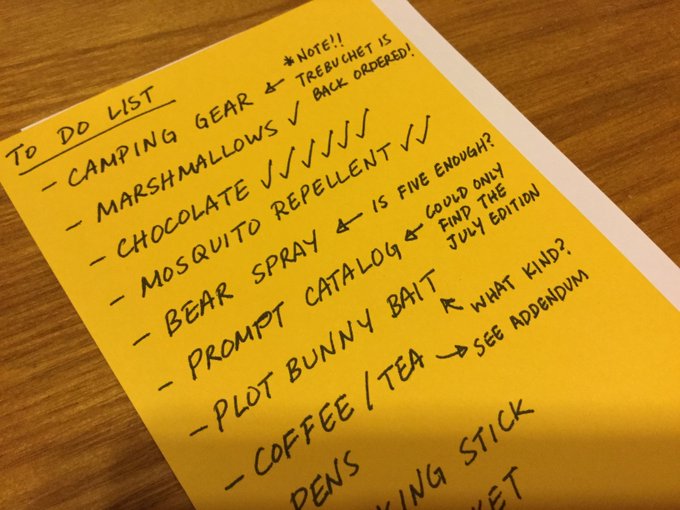 TO DO LIST
- CAMPING GEAR ← *NOTE!!
TREBUCHET IS
BACK ORDERED!
- MARSHMALLOWS ✓
- CHOCOLATE ✓✓✓✓✓✓
- MOSQUITO REPELLENT ✓✓
- BEAR SPRAY ← IS FIVE ENOUGH?
- PROMPT CATALOG ← COULD ONLY
FIND THE
JULY EDITION
- PLOT BUNNY BAIT ← WHAT KIND?
- COFFEE / TEA → SEE ADDENDUM
PENS
KING STICK
KET